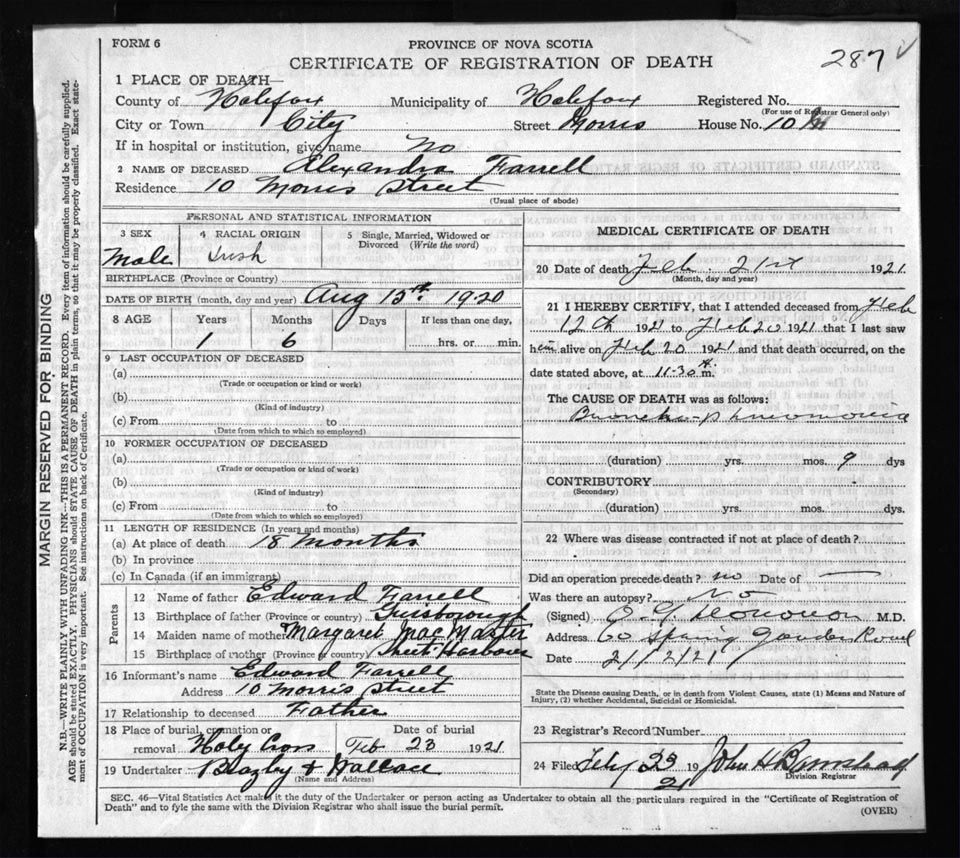 FORM 6
PROVINCE OF NOVA SCOTIA
287
CERTIFICATE OF REGISTRATION OF DEATH
1 PLACE OF DEATH—
County of Halifax Municipality of Halifax Registered No.
(For use of Registrar General only)
City or Town City Street Morris House No. 10
If in hospital or institution, give name No
2 NAME OF DECEASED Farrell
Residence 10 Morris Street
(Usual place of abode)
PERSONAL AND STATISTICAL INFORMATION
3 SEX 4 RACIAL ORIGIN 5 Single, Married, Widowed or Divorced (Write the word)
Male Irish
BIRTHPLACE (Province or Country)
DATE OF BIRTH (month, day and year) Aug 15th 1920
8 AGE Years Months Days If less than one day,
1 6 hrs. or min.
9 LAST OCCUPATION OF DECEASED
(a)
(Trade or occupation or kind or work)
(b)
(Kind of industry)
(c) From to
(Date from which to which so employed)
10 FORMER OCCUPATION OF DECEASED
(a)
(Trade or occupation or kind of work)
(b)
(Kind of industry)
(c) From to
(Date from which to which so employed)
11 LENGTH OF RESIDENCE (In years and months)
(a) At place of death 18 months
(b) In province
(c) In Canada (if an immigrant)
Parents
12 Name of father Edward Farrell
13 Birthplace of father (Province or country)
14 Maiden name of mother Margaret MacMaster
15 Birthplace of mother (Province or country) Sheet Harbour
16 Informant's name Edward Farrell
Address 10 Morris Street
17 Relationship to deceased Father
18 Place of burial, cremation or removal Holy Cross
Date of burial Feb 23 1921
19 Undertaker & Wallace
(Name and Address)
MEDICAL CERTIFICATE OF DEATH
20 Date of death Feb. 21st 1921
(Month, day and year)
21 I HEREBY CERTIFY, that I attended deceased from Feb
12th 1921 to Feb 20 1921 that I last saw
him alive on Feb 20 1921 and that death occurred, on the
date stated above, at 11-30 m.
The CAUSE OF DEATH was as follows:
Broncho-pneumonia
(duration) yrs. mos. 9 dys
CONTRIBUTORY
(Secondary)
(duration) yrs. mos. dys.
22 Where was disease contracted if not at place of death?
Did an operation precede death? no Date of —
Was there an autopsy? No
(Signed) M.D.
Address 60 Spring Garden Road
Date 21/2/21
State the Disease causing Death, or in death from Violent Causes, state (1) Means and Nature of
Injury, (2) whether Accidental, Suicidal or Homicidal.
23 Registrar's Record Number
24 Filed 19 John H
Division Registrar
SEC. 46—Vital Statistics Act makes it the duty of the Undertaker or person acting as Undertaker to obtain all the particulars required in the "Certificate of Registration of
Death" and to fyle the same with the Division Registrar who shall issue the burial permit.
(OVER)
MARGIN RESERVED FOR BINDING
N.B.—WRITE PLAINLY WITH UNFADING INK—THIS IS A PERMANENT RECORD. Every item of information should be carefully supplied.
AGE should be stated EXACTLY. PHYSICIANS should STATE CAUSE OF DEATH in plain terms, so that it may be properly classified. Exact state-
ment of OCCUPATION is very important. See instructions on back of Certificate.